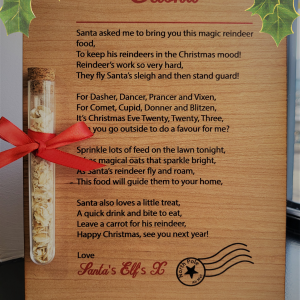 Santa asked me to bring you this magic reindeer
food,
To keep his reindeers in the Christmas mood!
Reindeer's work so very hard,
They fly Santa's sleigh and then stand guard!
For Dasher, Dancer, Prancer and Vixen,
For Comet, Cupid, Donner and Blitzen,
It's Christmas Eve Twenty, Twenty, Three,
you go outside to do a favour for me?
Sprinkle lots of feed on the lawn tonight,
magical oats that sparkle bright,
As Santa's reindeer fly and roam,
This food will guide them to your home,
Santa also loves a little treat,
A quick drink and bite to eat,
Leave a carrot for his reindeer,
Happy Christmas, see you next year!
Love
Santa's Elf's X
North Pole